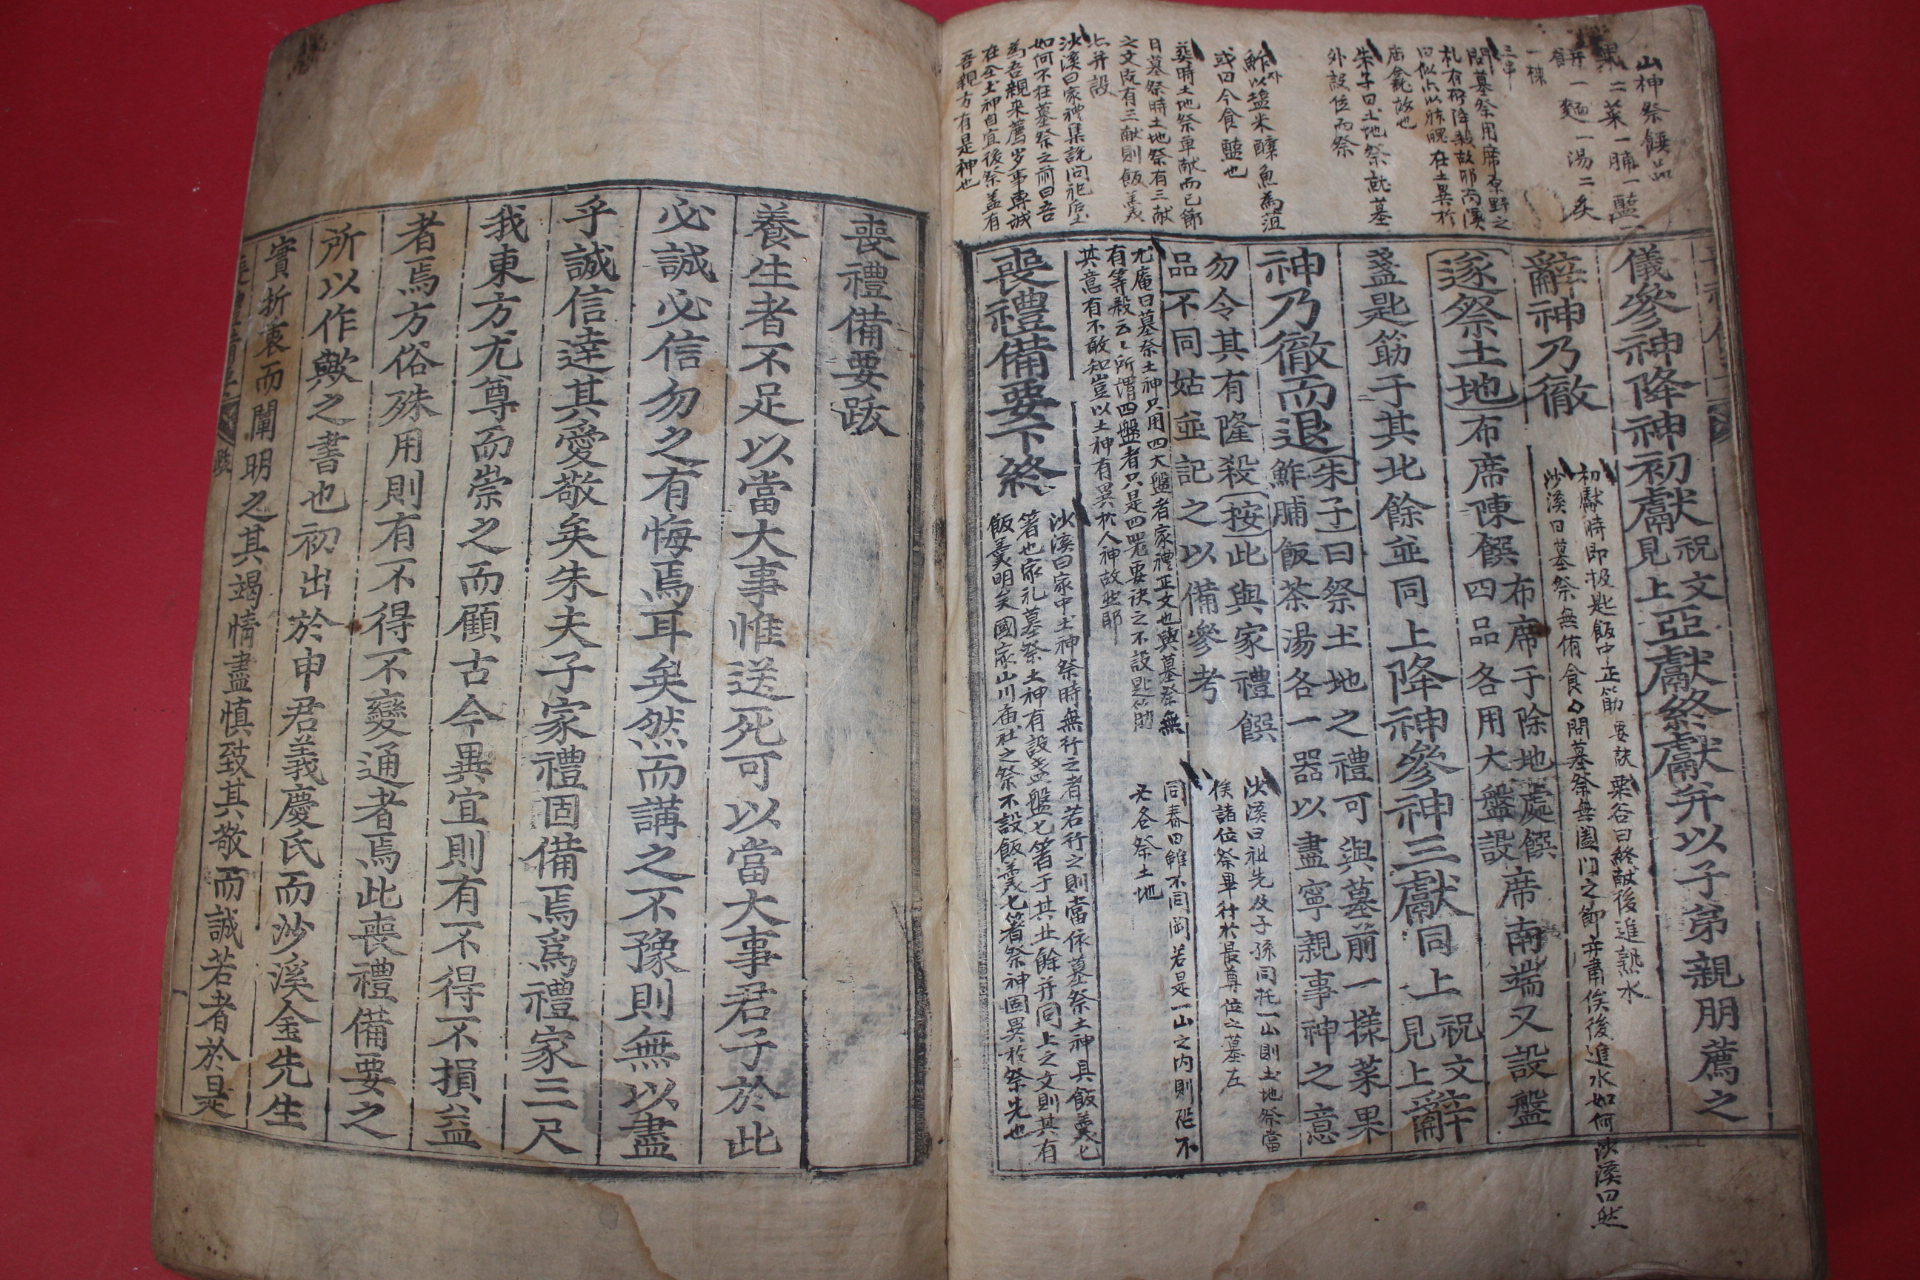 山神祭饌品
果二菜一脯一醢一
餠一麵一湯二炙
三串
問墓祭用席原野之
朱子曰土地祭就墓
外設位而祭
鮓以塩米釀魚爲菹
或曰今食醢也
葬時土地祭單献而已節
日墓祭時土地祭有三献
之文旣有三献則飯羹
亦并設
沙溪曰家禮集說問祀后土
如何不在墓祭之前曰吾
爲吾親来薦岁事專誠
在全土神自宜後祭盖有
吾親方有是神也
儀參神降神初獻祝文見上亞獻終獻并以子弟親朋薦之
初獻時即扱匙飯中正筯要訣栗谷曰終献後進熟水
沙溪曰墓祭無侑食問墓祭無闔門之節并肅俟後進水如何沙溪曰然
辭神乃徹
遂祭土地布席陳饌布席于除地處饌四品各用大盤設席南端又設盤
盞匙筯于其北餘並同上降神參神三獻同上祝文見上辭
神乃徹而退朱子曰祭土地之禮可與墓前一樣菜果鮓脯飯茶湯各一器以盡寧親事神之意
勿令其有隆殺按此與家禮饌品不同姑並記之以備參考
沙溪曰祖先及子孫同托一山則土地祭當
俟諸位祭畢行於最尊位之墓左
同春曰雖不同岡若是一山之内則恐不
必各祭土地
尤庵曰墓祭土神只用四大盤者家禮正文也與墓祭無
有等殺云云所謂四盤者只是四器要訣之不設匙筯
其意有不敢知豈以土神有異於人神故然耶
沙溪曰家中土神祭時無行之者若行之則當依墓祭土神具飯羹匕
箸也家礼墓祭土神有設盞盤匕箸于其北餘并同上之文則其有
飯羹明矣國家山川庙社之祭不設飯羹匕箸祭神固異於祭先也
喪禮備要下終
喪禮備要跋
養生者不足以當大事惟送死可以當大事君子於此
必誠必信勿之有悔焉耳矣然而講之不豫則無以盡
乎誠信達其愛敬矣朱夫子家禮固備焉爲禮家三尺
我東方尤尊而崇之而顧古今異宜則有不得不損益
者焉方俗殊用則有不得不變通者焉此喪禮備要之
所以作歟之書也初出於申君義慶氏而沙溪金先生
實折衷而闡明之其竭情盡愼致其敬而誠若者於是